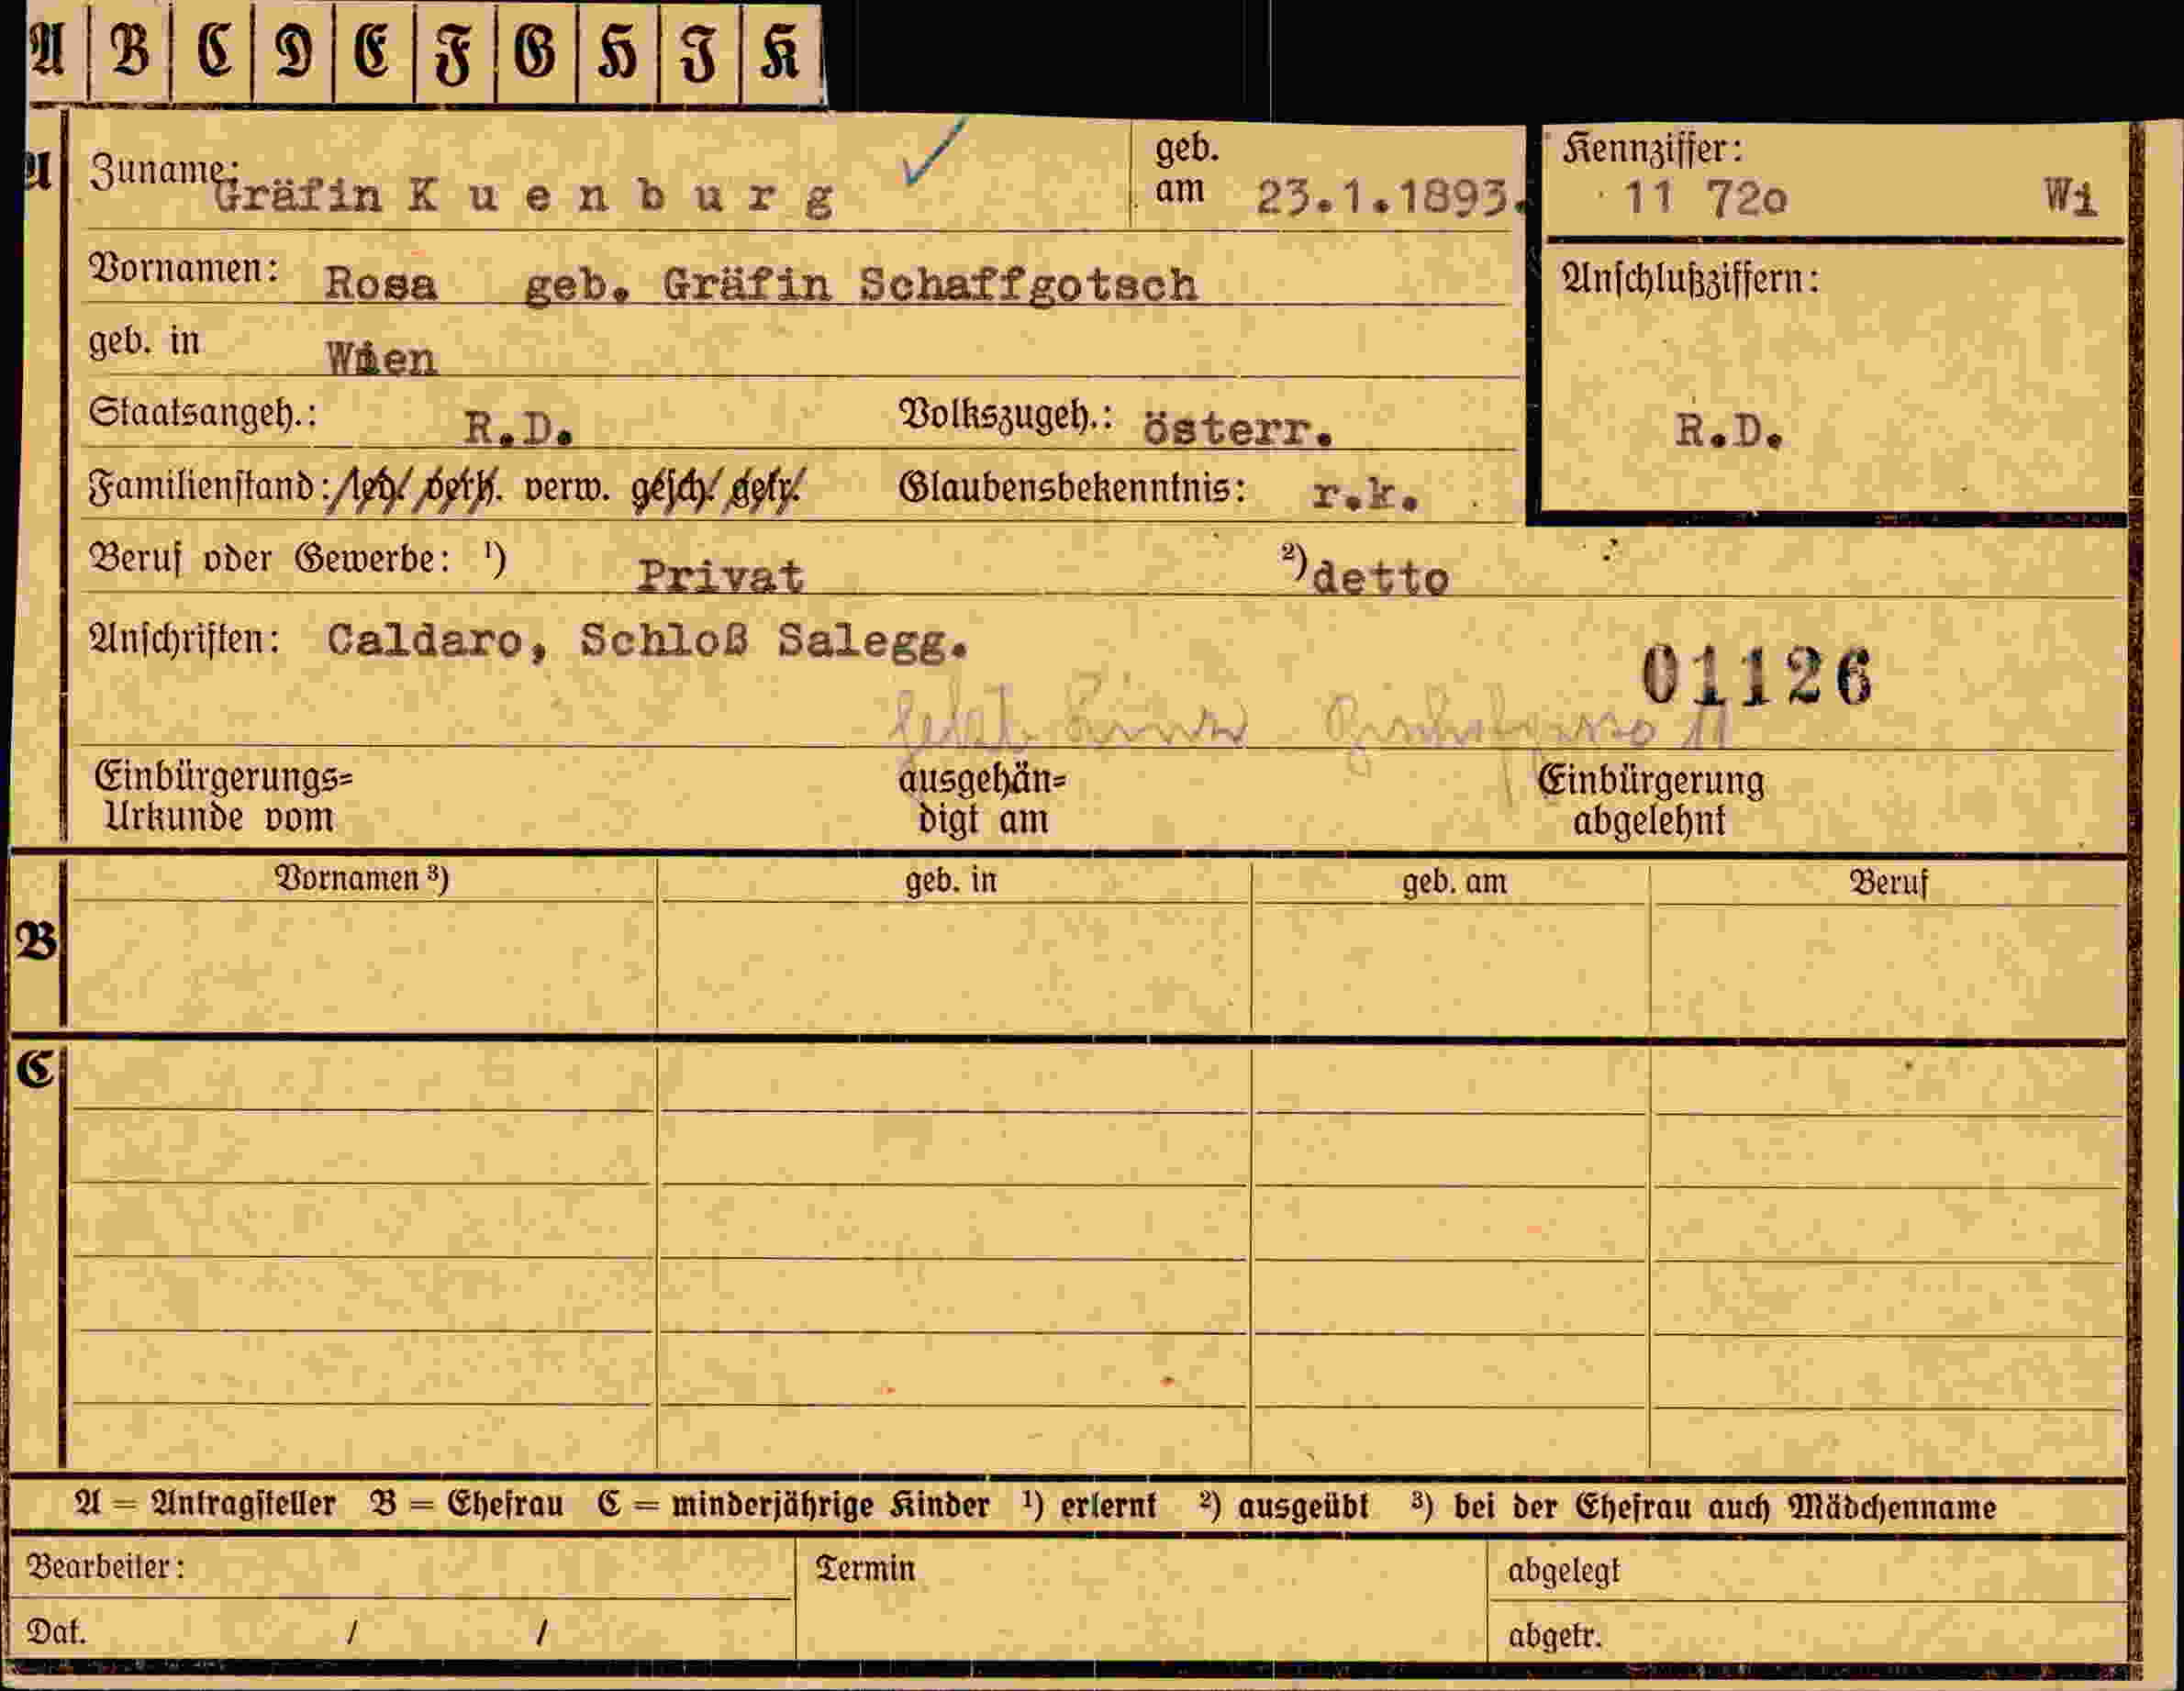 A B C D E F G H I K
A
Zuname: Gräfin Kuenburg geb. am 23.1.1893.
Kennziffer: 11 72o Wi
Vornamen: Rosa geb. Gräfin Schaffgotsch
Anschlußziffern:
geb. in Wien
Staatsangeh.: R.D. Volkszugeh.: österr.
R.D.
Familienstand: led. verh. verw. gesch. getr. Glaubensbekenntnis: r.k.
Beruf oder Gewerbe: ¹) Privat ²) detto
Anschriften: Caldaro, Schloß Salegg.
01126
11
Einbürgerungs= Urkunde vom
ausgehän= digt am
Einbürgerung abgelehnt
B
Vornamen ³) geb. in geb. am Beruf
C
A = Antragsteller B = Ehefrau C = minderjährige Kinder ¹) erlernt ²) ausgeübt ³) bei der Ehefrau auch Mädchenname
Bearbeiter: Termin abgelegt
Dat. / / abgetr.